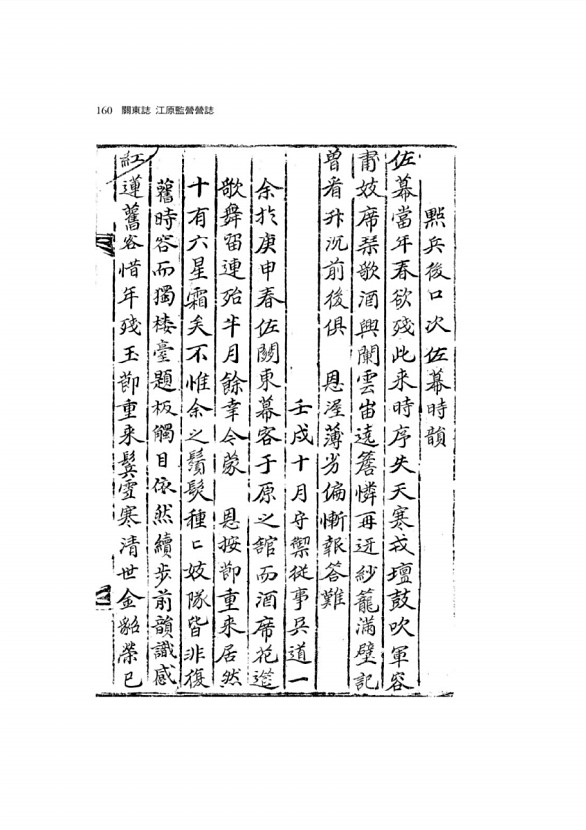 160 關東誌 江原監營營誌
點兵後口次佐幕時韻
佐幕當年春欲殘此来時序失天寒戎壇鼓吹軍容
肅妓席琹歌酒興闌雲峀遠簷憐再迓紗籠滿壁記
曾看升沉前後俱 恩渥薄劣偏慚報答難
壬戌十月守禦從事吳道一
余於庚申春佐關東幕客于原之舘而酒席花筵
歌舞留連殆半月餘幸今蒙 恩按節重来居然
十有六星霜矣不惟余之鬚髮種〻妓隊皆非復
舊時容而獨樓臺題板觸目依然續步前韻識感
紅蓮舊客惜年殘玉節重来鬂雪寒清世金貂榮已